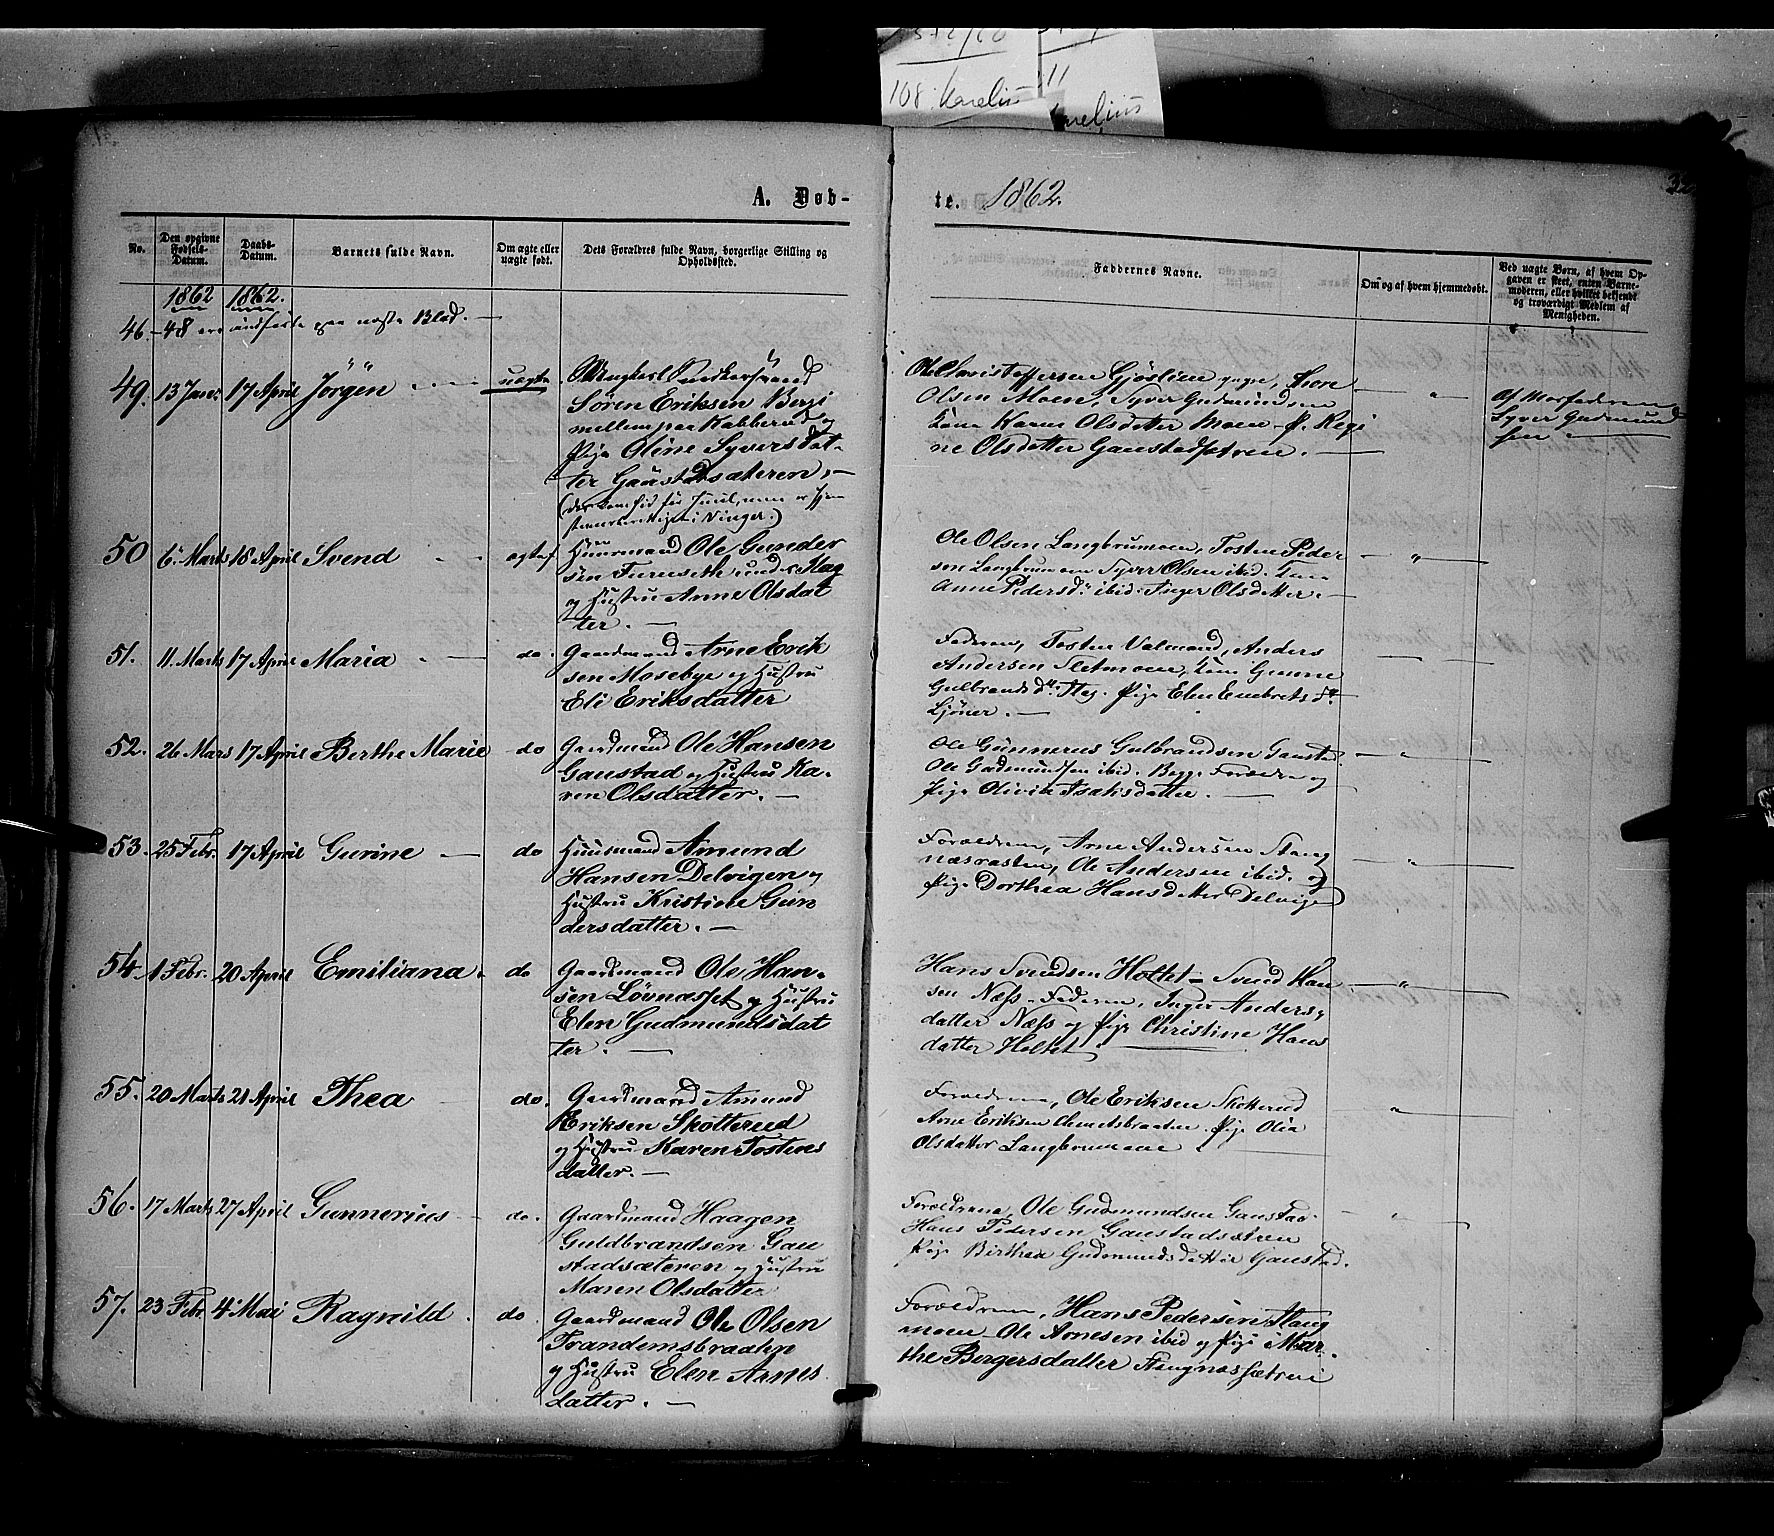 108 Karelius
A. Døb-
te. 1862.
No.
Den opgivne Fødsels-Datum.
Daabs-Datum.
Barnets fulde Navn.
Om ægte eller uægte født.
Dets Forældres fulde Navn, borgerlige Stilling og Opholdssted.
Faddernes Navne.
Om og af hvem hjemmedøbt.
Ved uægte Børn, af hvem Opgaven er skeet, enten Barnemoderen, eller hvilket bekjendt og troværdigt Medlem af Menigheden.
1862 1862.
46-48 ere indførte paa næste Blad. —
49. 13 Janr. 17 April Jörgen uægte
Sören Eriksen
mellem paa Kabberud og
Pige Oline Syversdat-
ter Gaustadsæteren. —
Ole Christoffersen Gjöslien yngre, Tore
Olsen Moen, Syver Gudmundsen
Kone Karen Olsdatter Moen - P. Regi
ne Olsdatter Gaustadsetren. —
"
Af Morfaderen
Syver Gudmund
sen —
50 6 Marts 18 April Svend ægtef.
Huusmand Ole Gunder
sen Furuseth under Slag
og Hustru Anne Olsdat
ter. —
Ole Olsen Langbrumoen, Tosten Peder
sen Langbrumoen Syver Olsen ibid. Kone
Anne Pedersd: ibid. Inger Olsdatter. —
"
51. 11. Marts 17 April Maria do.
Gaardmand Arne Erik
sen Mosebye og Hustru
Eli Eriksdatter
Faderen, Tosten Valmand, Anders
Andersen Sletmoen, Kone Gunne
Gulbrandsdr. Pige Elen Embretsdr
Ljöner. —
"
52. 26 Mars 17 April Berthe Marie do
Gaardmand Ole Hansen
Gaustad og Hustru Ka-
ren Olsdatter. —
Ole Gunnerus Gulbrandsen Gaustad
Ole Gudmundsen ibid. Begge Forældre og
Pige Olivie Isaksdatter. —
"
53. 25 Febr. 17 April Gurine do
Huusmand Amund
Hansen Delvigen og
Hustru Kristine Gun
dersdatter. —
Forældrene, Arne Andersen Stang
næsrasten, Ole Andersen ibid. og
Pige Dorthea Hansdatter Delvigen
"
54. 1 Febr. 20 April Emiliana. do
Gaardmand Ole Han-
sen Lövnæsset og Hustru
Elen Gudmundsdat
ter. —
Hans Svendsen Holtet - Svend Han
sen Næss - Faderen, Inger Anders-
datter Næss og Pige Christine Hans
datter Holtet
"
55. 20 Marts 21 April Thea do.
Gaardmand Amund
Eriksen Skotterud
og Hustru Karen Tostens
datter. —
Forældrene, Ole Eriksen Skotterud
Arne Eriksen Pige Olia
Olsdatter Langbrumoen
"
56. 17 Marts 27 April Gunnerius do.
Gaardmand Haagen
Guldbrandsen Gau
stadsæteren og Hustru
Maren Olsdatter
Forældrene, Ole Gudmundsen Gaustad-
Hans Pedersen Gaustadsætren
Pige Birthea Gudmundsdatter Gaustad.
"
57. 23 Febr. 4 Mai Ragnild do.
Gaardmand Ole Olsen
Trandemsbraaten
og Hustru Elen Arnes
datter. —
Forældrene, Hans Pedersen Stang
moen - Ole Arnesen ibid og Pige Mar
the Bergersdatter Stangnæssætren